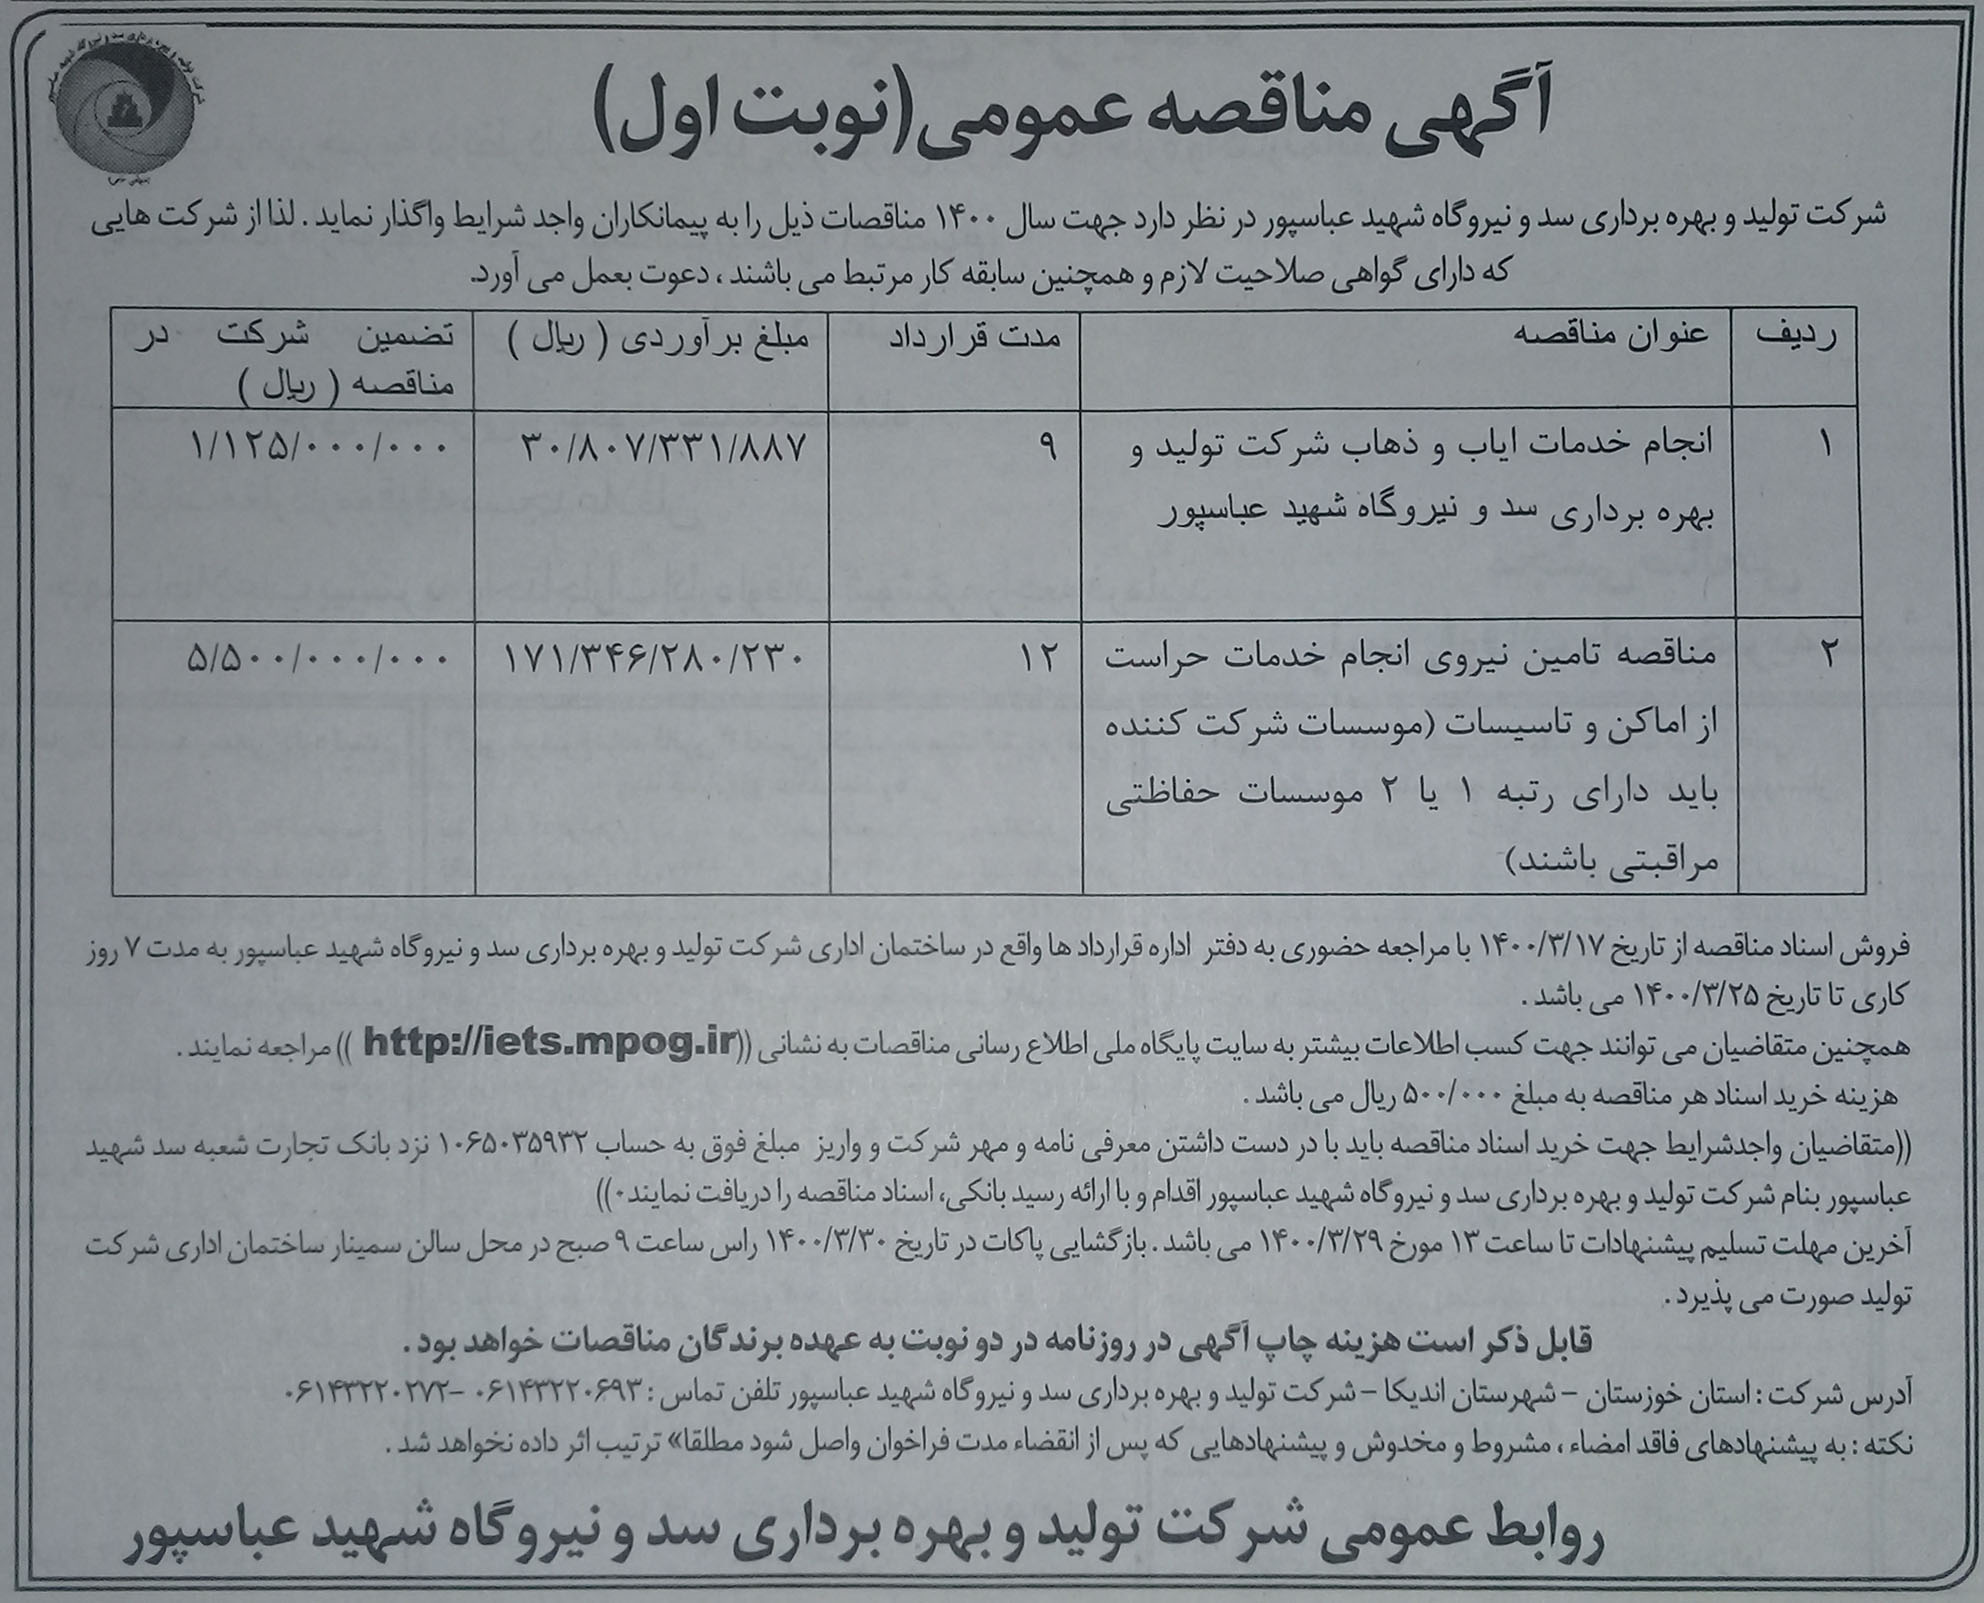 آگهی مناقصه عمومی(نوبت اول)
شرکت تولید و بهره برداری سد و نیروگاه شهید عباسپور در نظر دارد جهت سال ۱۴۰۰ مناقصات ذیل را به پیمانکاران واجد شرایط واگذار نماید . لذا از شرکت هایی
که دارای گواهی صلاحیت لازم و همچنین سابقه کار مرتبط می باشند ، دعوت بعمل می آورد.
ردیف عنوان مناقصه مدت قرارداد مبلغ برآوردی ( ریال ) تضمین شرکت در
مناقصه ( ریال )
۱ انجام خدمات ایاب و ذهاب شرکت تولید و ۹ ۳۰/۸۰۷/۳۳۱/۸۸۷ ۱/۱۲۵/۰۰۰/۰۰۰
بهره برداری سد و نیروگاه شهید عباسپور
۲ مناقصه تامین نیروی انجام خدمات حراست ۱۲ ۱۷۱/۳۴۶/۲۸۰/۲۳۰ ۵/۵۰۰/۰۰۰/۰۰۰
از اماکن و تاسیسات (موسسات شرکت کننده
باید دارای رتبه ۱ یا ۲ موسسات حفاظتی
مراقبتی باشند)
فروش اسناد مناقصه از تاریخ ۱۴۰۰/۳/۱۷ با مراجعه حضوری به دفتر اداره قرارداد ها واقع در ساختمان اداری شرکت تولید و بهره برداری سد و نیروگاه شهید عباسپور به مدت ۷ روز
کاری تا تاریخ ۱۴۰۰/۳/۲۵ می باشد .
همچنین متقاضیان می توانند جهت کسب اطلاعات بیشتر به سایت پایگاه ملی اطلاع رسانی مناقصات به نشانی ((http://iets.mpog.ir )) مراجعه نمایند .
هزینه خرید اسناد هر مناقصه به مبلغ ۵۰۰/۰۰۰ ریال می باشد .
((متقاضیان واجدشرایط جهت خرید اسناد مناقصه باید با در دست داشتن معرفی نامه و مهر شرکت و واریز مبلغ فوق به حساب ۱۰۶۵۰۳۵۹۳۲ نزد بانک تجارت شعبه سد شهید
عباسپور بنام شرکت تولید و بهره برداری سد و نیروگاه شهید عباسپور اقدام و با ارائه رسید بانکی، اسناد مناقصه را دریافت نمایند۰))
آخرین مهلت تسلیم پیشنهادات تا ساعت ۱۳ مورخ ۱۴۰۰/۳/۲۹ می باشد . بازگشایی پاکات در تاریخ ۱۴۰۰/۳/۳۰ راس ساعت ۹ صبح در محل سالن سمینار ساختمان اداری شرکت
تولید صورت می پذیرد .
قابل ذکر است هزینه چاپ آگهی در روزنامه در دو نوبت به عهده برندگان مناقصات خواهد بود .
آدرس شرکت : استان خوزستان – شهرستان اندیکا – شرکت تولید و بهره برداری سد و نیروگاه شهید عباسپور تلفن تماس : ۰۶۱۴۳۲۲۰۶۹۳ –۰۶۱۴۳۲۲۰۲۷۲
نکته : به پیشنهادهای فاقد امضاء ، مشروط و مخدوش و پیشنهادهایی که پس از انقضاء مدت فراخوان واصل شود مطلقا» ترتیب اثر داده نخواهد شد .
روابط عمومی شرکت تولید و بهره برداری سد و نیروگاه شهید عباسپور